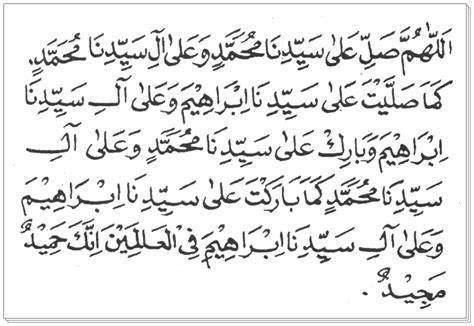 اَللّٰهُمَّ صَلِّ عَلٰى سَيِّدِنَا مُحَمَّدٍ وَعَلٰى اٰلِ سَيِّدِنَا مُحَمَّدٍ.
كَمَا صَلَّيْتَ عَلٰى سَيِّدِنَا اِبْرَاهِيْمَ وَعَلٰى اٰلِ سَيِّدِنَا
اِبْرَاهِيْمَ وَبَارِكْ عَلٰى سَيِّدِنَا مُحَمَّدٍ وَعَلٰى اٰلِ
سَيِّدِنَا مُحَمَّدٍ كَمَا بَارَكْتَ عَلٰى سَيِّدِنَا اِبْرَاهِيْمَ
وَعَلٰى اٰلِ سَيِّدِنَا اِبْرَاهِيْمَ فِى الْعَالَمِيْنَ اِنَّكَ حَمِيْدٌ
مَجِيْدٌ .